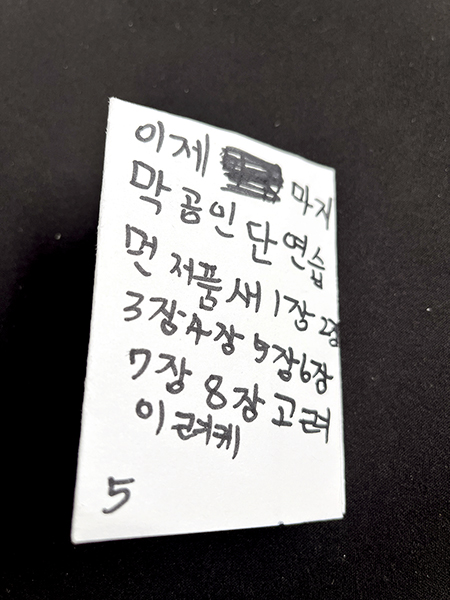 이제 마지
막 공인 단 연습
먼 저품 새 1장 2장
3장 4장 5장 6장
7장 8장 고려
이려케
5